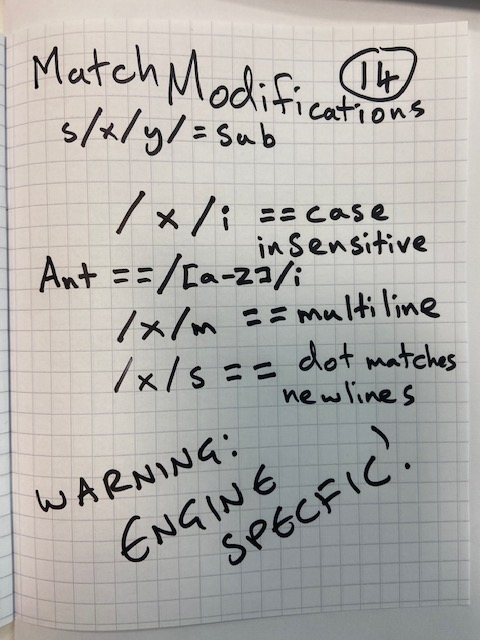 Match Modifications
14
s/x/y/ = sub
/x/i == case
insensitive
Ant == /[a-z]/i
/x/m == multiline
/x/s == dot matches
newlines
WARNING:
ENGINE
SPECFIC.